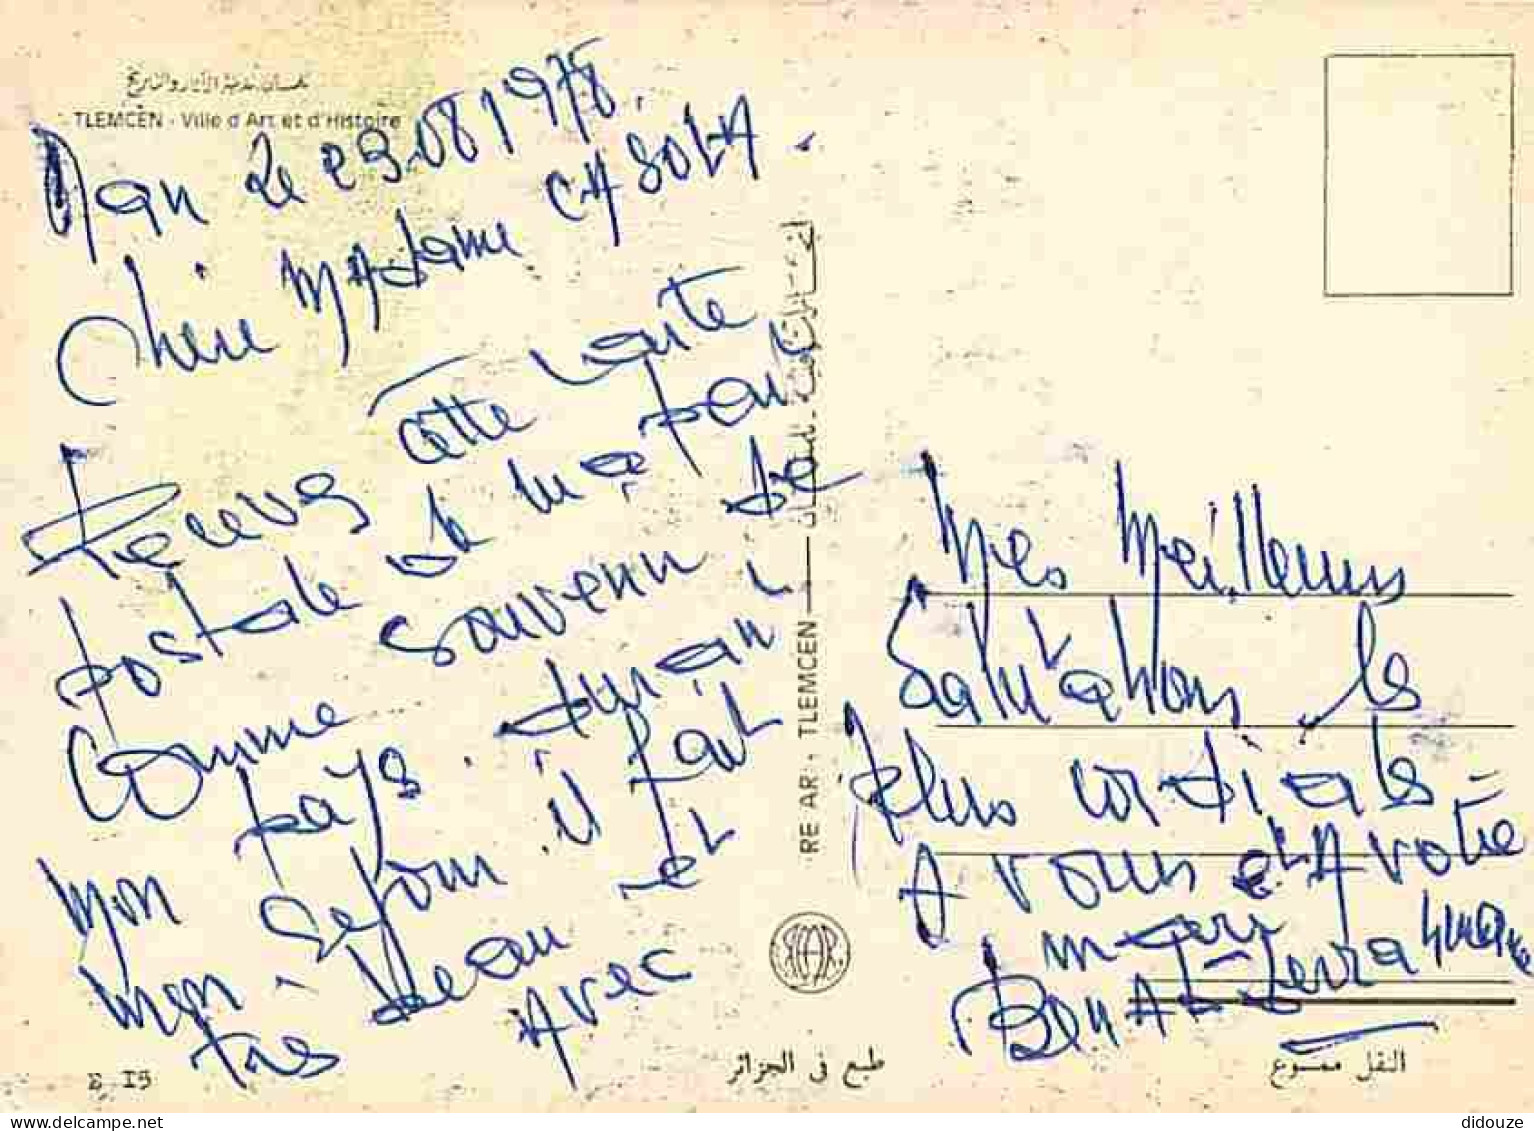 تلمسان مدينة الآثار والتاريخ
TLEMCEN - Ville d'Art et d'Histoire
le 29-08 1978.
Chère MAdame CASOLA.
cette carte
postale de ma part
Comme souvenir de
mon pays. durant
mon séjour il fait
très beau et
Avec
Mes Meilleurs
Salutations les
plus cordiales -
A vous et A votre
mari
BENAbderra
RE AR - TLEMCEN
E I5
طبع في الجزائر
النقل ممنوع
didouze